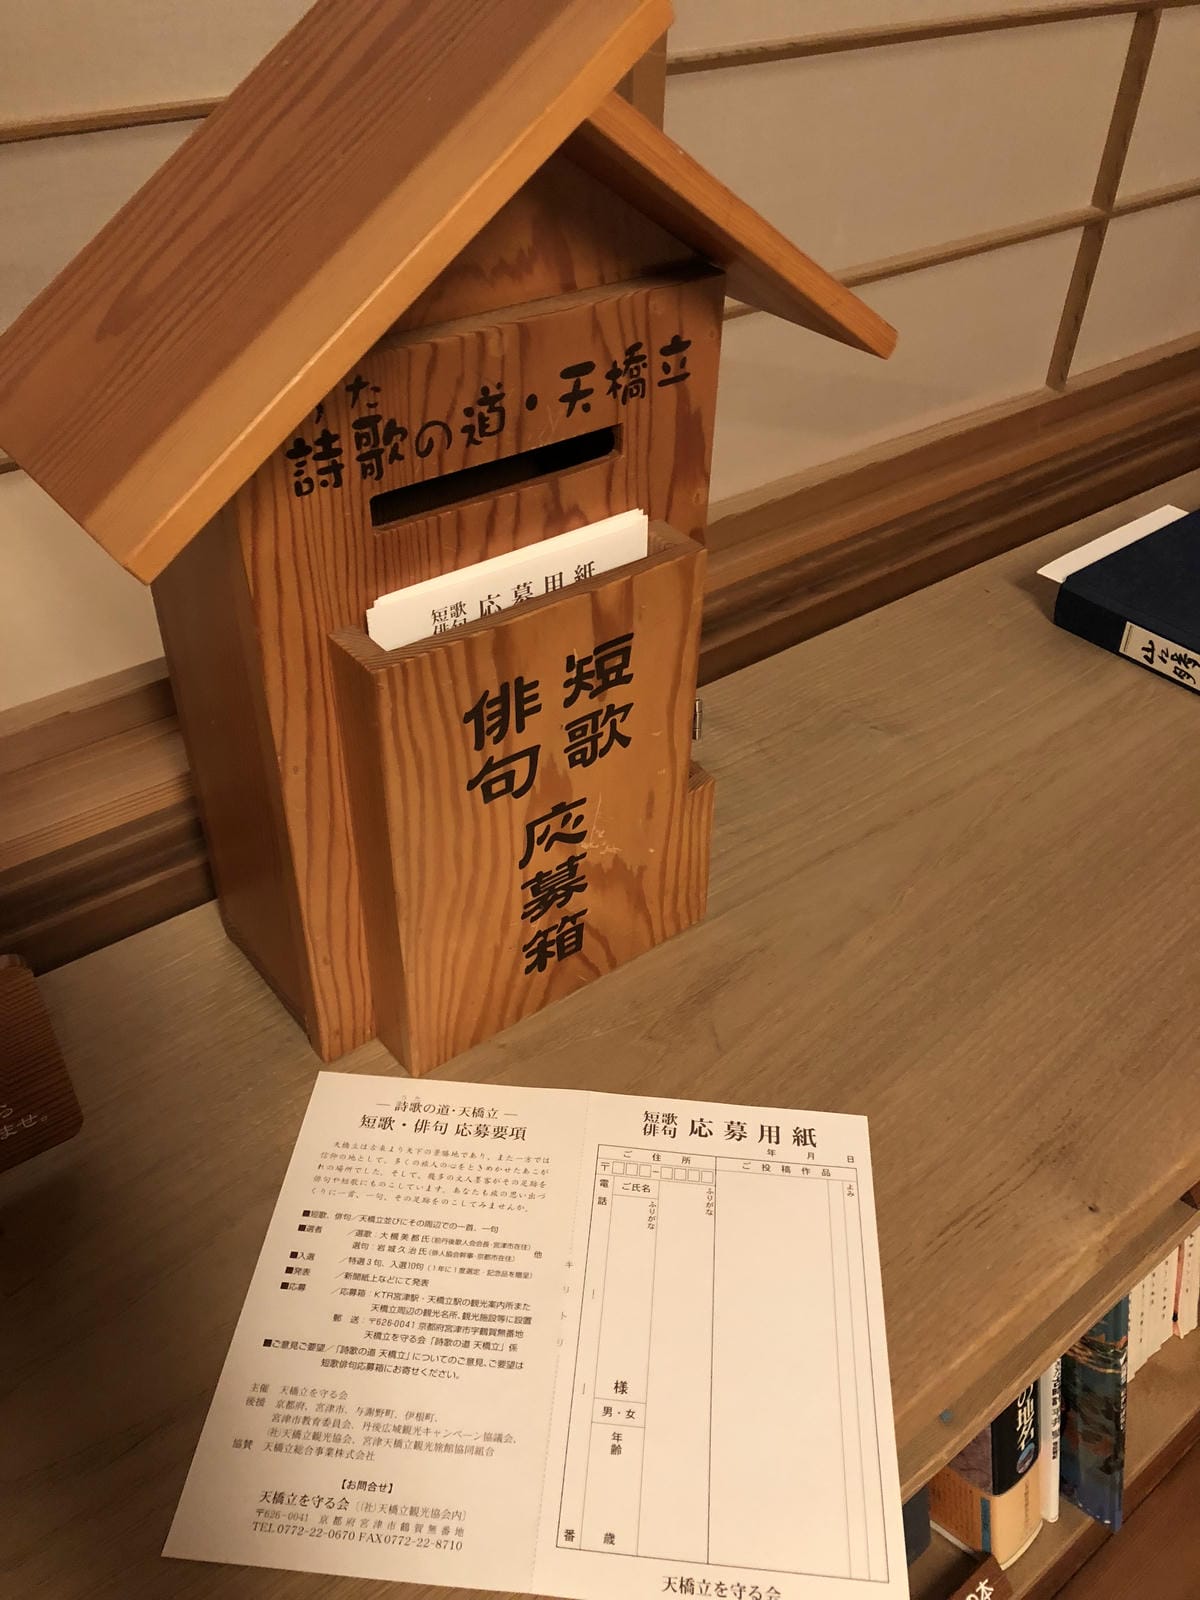 うた
詩歌の道・天橋立
短歌
俳句
応募用紙
短歌
俳句
応募箱
ませ。
― 詩歌の道・天橋立 ―
短歌・俳句 応募要項
天橋立は古来より天下の景勝地であり、また一方では
信仰の地として、多くの旅人の心をときめかせたあこが
れの場所でした。そして、幾多の文人墨客がその足跡を
俳句や短歌にものこしています。あなたも旅の思い出づ
くりに一首、一句、その足跡をのこしてみませんか。
■短歌、俳句／天橋立並びにその周辺での一首、一句
■選者 ／選歌：大槻美都氏（前丹後歌人会会長・宮津市在住）
選句：岩城久治氏（俳人協会幹事・京都市在住） 他
■入選 ／特選3句、入選10句（1年に1度選定・記念品を贈呈）
■発表 ／新聞紙上などにて発表
■応募 ／応募箱：KTR宮津駅・天橋立駅の観光案内所また
天橋立周辺の観光名所、観光施設等に設置
郵 送：〒626-0041 京都府宮津市字鶴賀無番地
天橋立を守る会「詩歌の道 天橋立」係
■ご意見ご要望／「詩歌の道 天橋立」についてのご意見、ご要望は
短歌俳句応募箱にお寄せください。
主催 天橋立を守る会
後援 京都府、宮津市、与謝野町、伊根町、
宮津市教育委員会、丹後広域観光キャンペーン協議会、
(社)天橋立観光協会、宮津天橋立観光旅館協同組合
協賛 天橋立総合事業株式会社
【お問合せ】
天橋立を守る会〔(社)天橋立観光協会内〕
〒626-0041 京都府宮津市鶴賀無番地
TEL0772-22-0670 FAX0772-22-8710
キリトリ
短歌
俳句
応募用紙
年 月 日
ご住所
ご投稿作品
〒
よみ
電話
ご氏名
ふりがな
ふりがな
様
男・女
年齢
番
歳
天橋立を守る会
の地名
の本